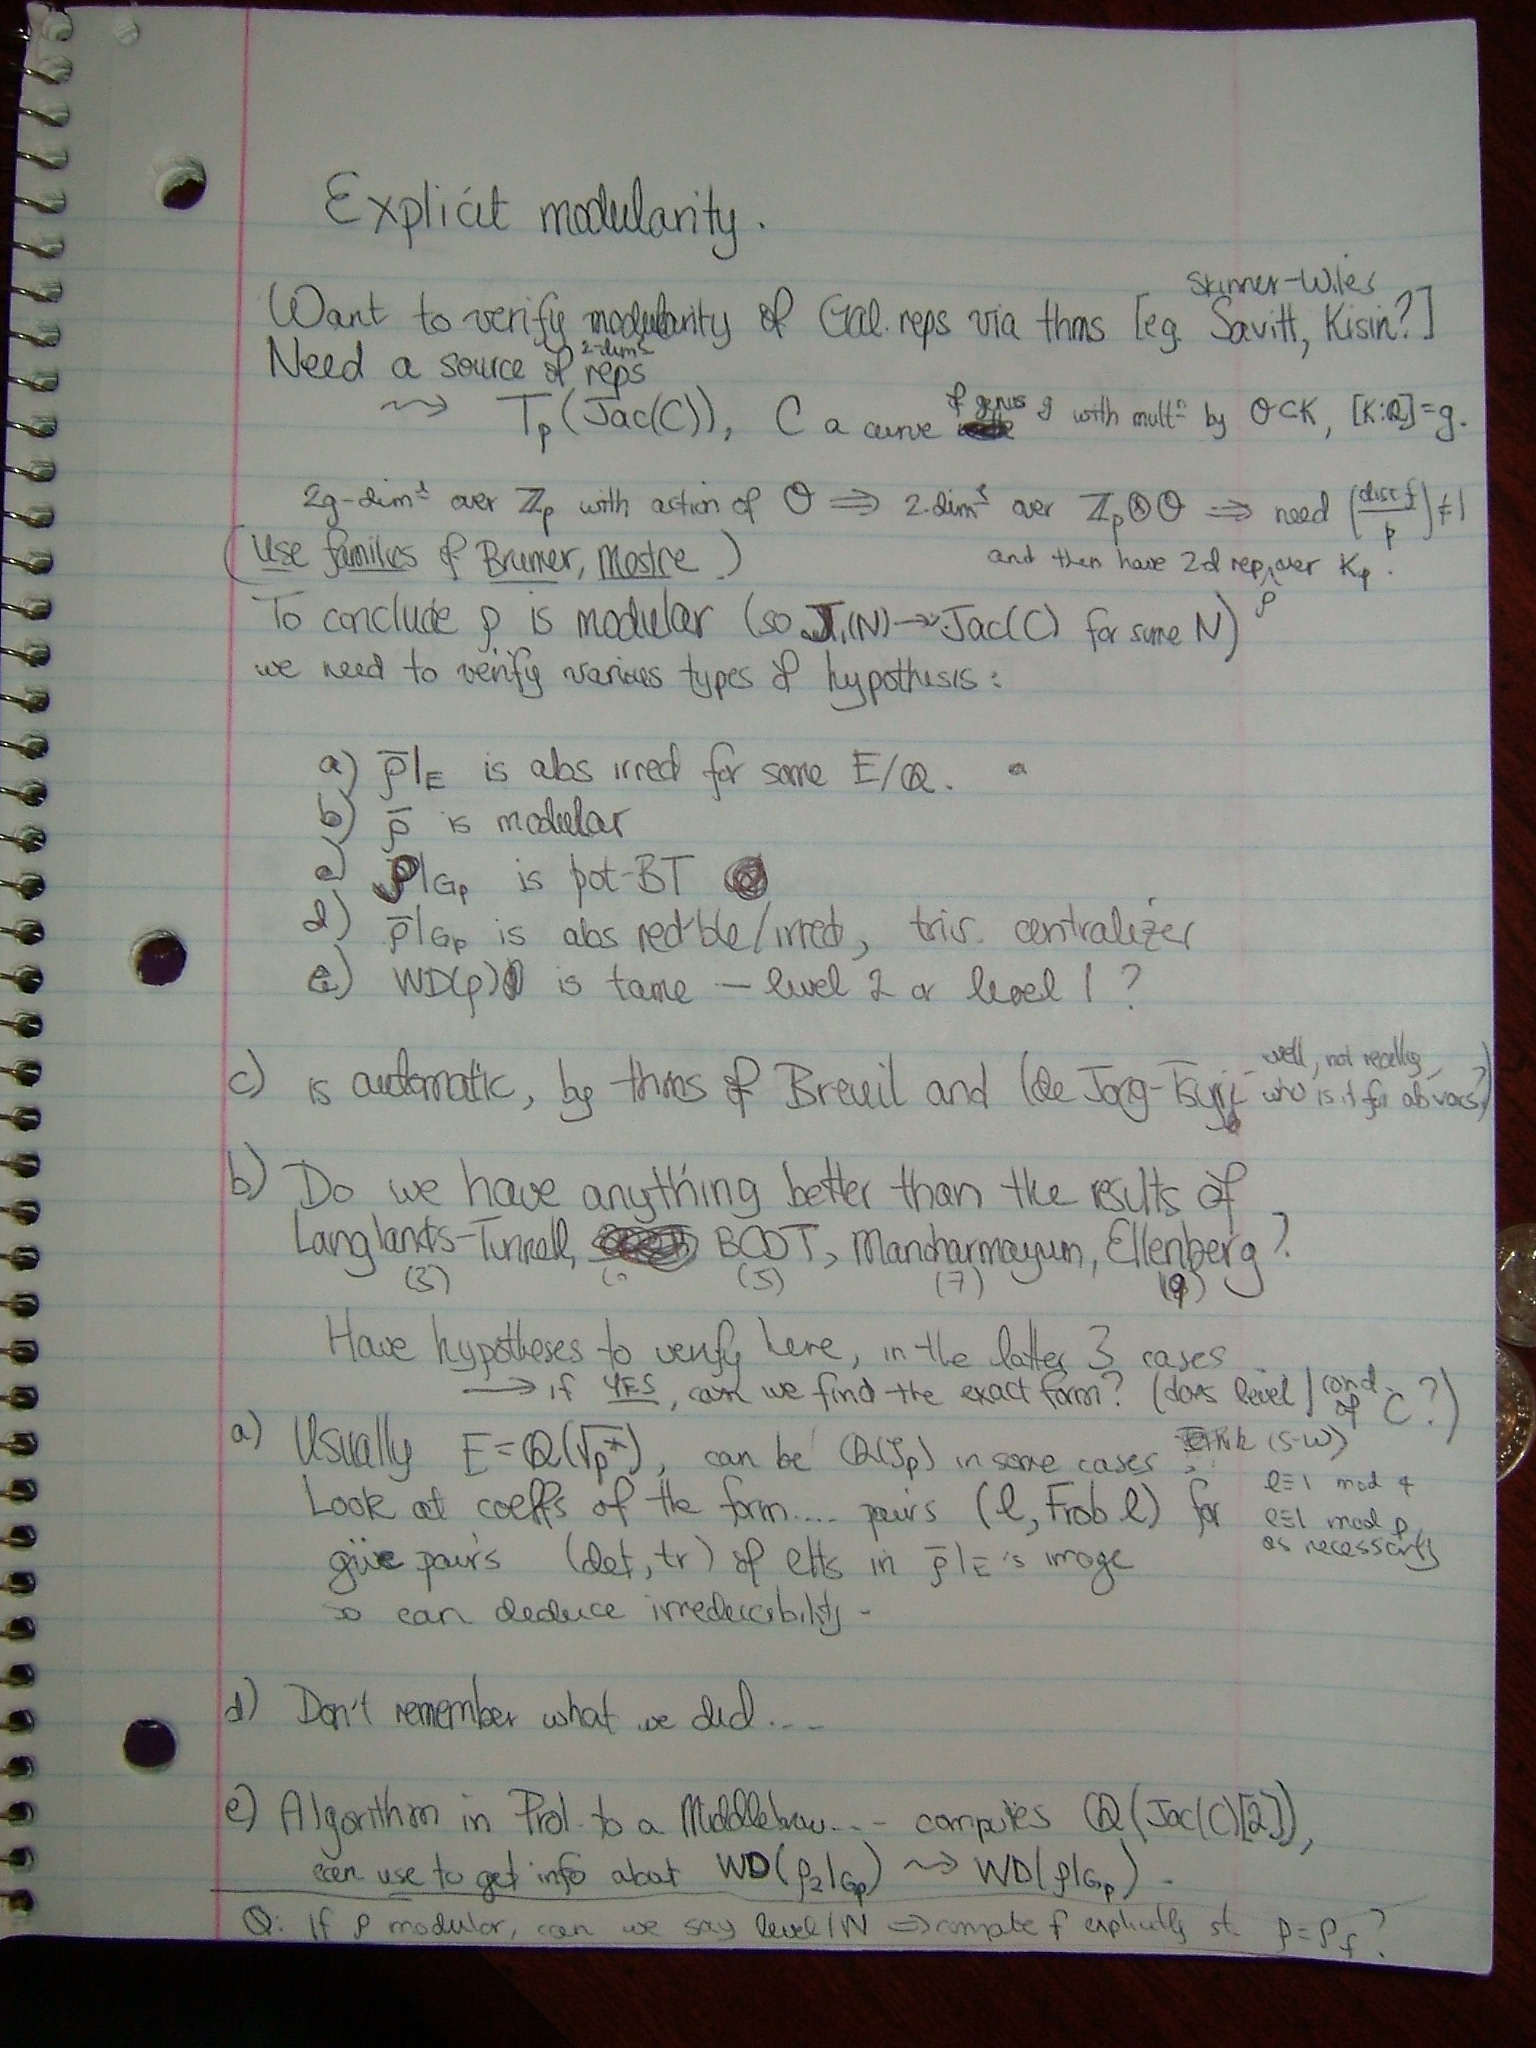 Explicit modularity.
Skinner-Wiles
Want to verify modularity of Gal. reps via thms [eg. Savitt, Kisin?]
Need a source of 2-diml reps
⇝ Tp(Jac(C)), C a curve of genus g with multn by O⊂K, [K:Q]=g.
2g-diml over Zp with action of O ⇒ 2-diml over Zp⊗O ⇒ need (disc f/p)≠1
(Use families of Brumer, Mestre.) and then have 2d rep ρ over Kp.
To conclude ρ is modular (so J1(N)↠Jac(C) for some N)
we need to verify various types of hypothesis:
a) ρ̄|E is abs irred for some E/Q.
b) ρ̄ is modular
c) ρ|Gp is pot-BT
d) ρ̄|Gp is abs red'ble/irred, triv. centralizer
e) WD(ρ) is tame – level 2 or level 1?
c) is automatic, by thms of Breuil and (de Jong-Tsuji - well, not really, who is it for ab vars?)
b) Do we have anything better than the results of
Langlands-Tunnell, BCDT, Manoharmayum, Ellenberg?
(3) (5) (7) (9)
Have hypotheses to verify here, in the latter 3 cases
→ if YES, can we find the exact form? (does level | cond of C?)
a) Usually E=Q(√p*), can be Q(ζp) in some cases (S-W)
Look at coeffs of the form.... pairs (l, Frob l) for l≡1 mod 4
l≡1 mod p,
as necessary
give pairs (det, tr) of elts in ρ̄|E's image
so can deduce irreducibility -
d) Don't remember what we did....
e) Algorithm in Prol. to a Middlebrow... - computes Q(Jac(C)[2]),
can use to get info about WD(ρ2|Gp) ⇝ WD(ρ|Gp).
Q: If ρ modular, can we say level|N ⇒ compute f explicitly st. ρ=ρf?